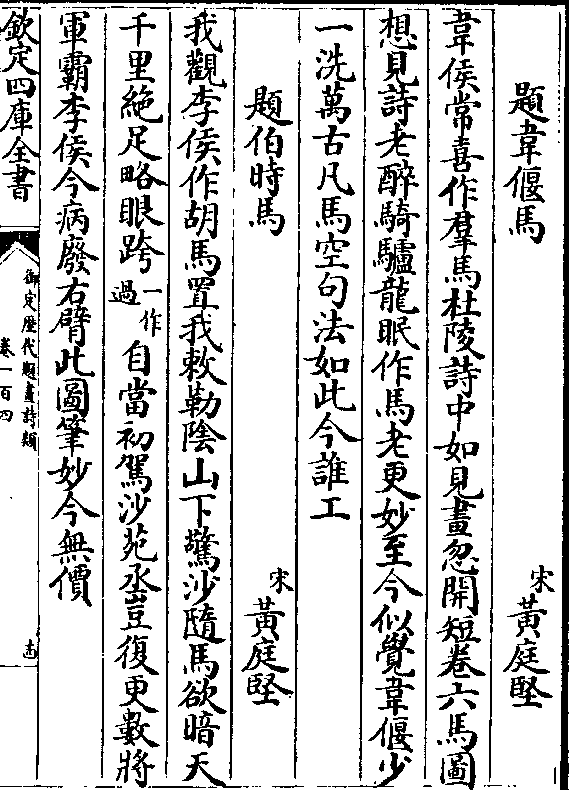 題韋偃馬　宋　黃庭堅
韋侯常喜作羣馬杜陵詩中如見畫忽開短卷六馬圖
想見詩老醉騎驢龍眠作馬老更妙至今似覺韋偃少
一洗萬古凡馬空句法如此今誰工
題伯時馬　宋　黃庭堅
我觀李侯作胡馬置我敕勒陰山下驚沙隨馬欲暗天
千里絶足略眼跨一作過自當初駕沙苑丞豈復更數將
軍霸李侯今病廢右臂此圖筆妙今無價
欽定四庫全書
御定歴代題畫詩類
卷一百四